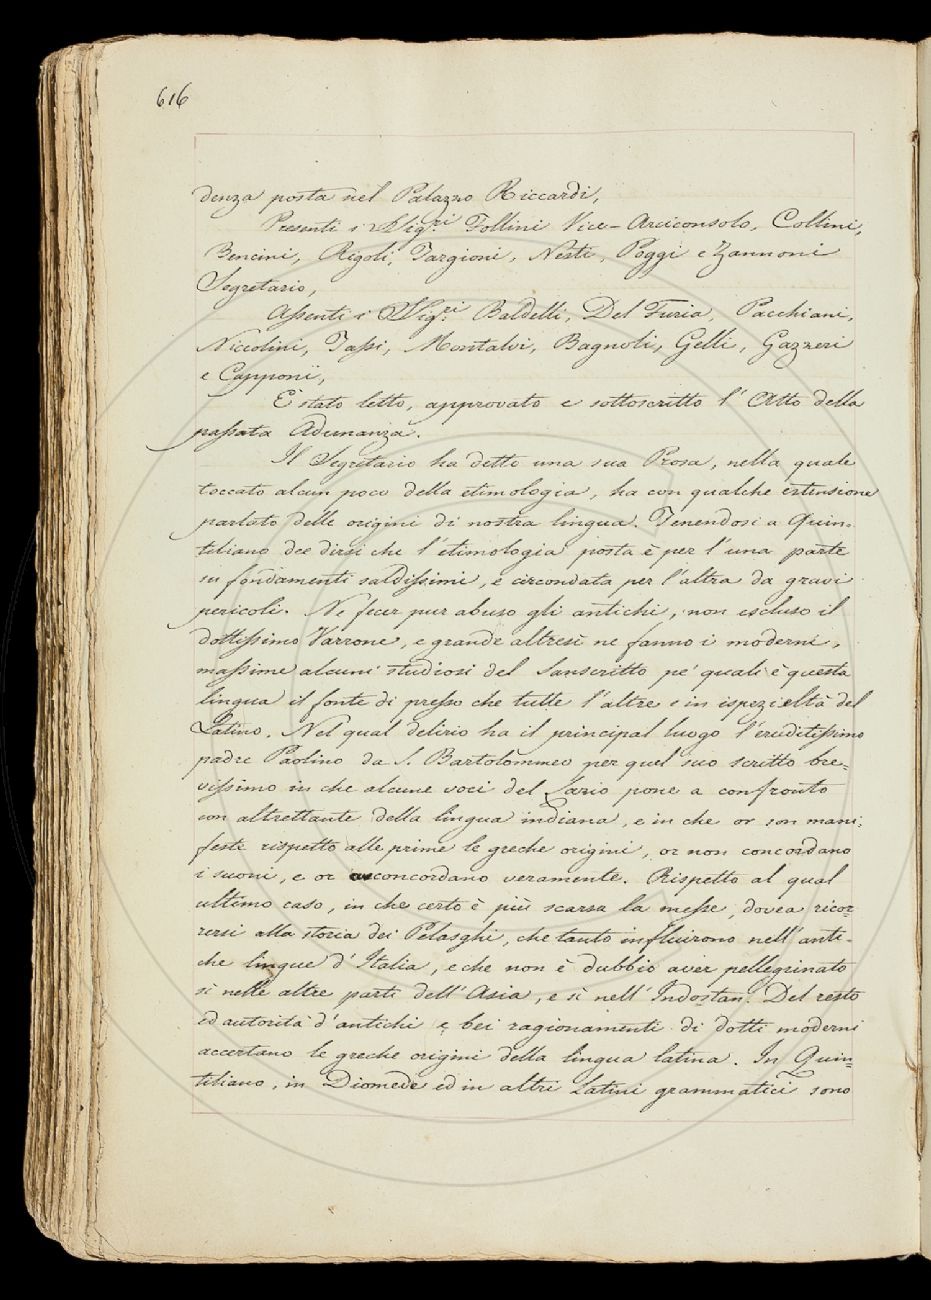 616
denza posta nel Palazzo Riccardi,
Presenti i Sig.ri Follini Vice-Arciconsolo, Collini,
Bencini, Rigoli, Targioni, Nesti, Poggi e Zannoni
Segretario,
Assenti i Sig.ri Baldelli, Del Furia, Pacchiani,
Niccolini, Tassi, Montalvi, Bagnoli, Gelli, Gazzeri
e Capponi,
È stato letto, approvato e sottoscritto l'Atto della
passata Adunanza.
Il Segretario ha detto una sua Prosa, nella quale
toccato alcun poco della etimologia, ha con qualche estensione
parlato delle origini di nostra lingua. Tenendosi a Quin-
tiliano dee dirsi che l'etimologia posta è per l'una parte
su fondamenti saldissimi, e circondata per l'altra da gravi
pericoli. Ne fecer pur abuso gli antichi, non escluso il
dottissimo Varrone, e grande altresì ne fanno i moderni,
massime alcuni studiosi del Sanscritto pe' quali è questa
lingua il fonte di presso che tutte l'altre e in ispezieltà del
Latino. Nel qual delirio ha il principal luogo l'eruditissimo
padre Paolino da S. Bartolommeo per quel suo scritto bre=
vissimo in che alcune voci del Lazio pone a confronto
con altrettante della lingua indiana, e in che or son mani=
feste rispetto alle prime le greche origini, or non concordano
i suoni, e or concordano veramente. Rispetto al qual
ultimo caso, in che certo è più scarsa la messe, dovea ricor=
rersi alla storia dei Pelasghi, che tanto influirono nell'anti-
che lingue d'Italia, e che non è dubbio aver pellegrinato
sì nelle altre parti dell'Asia, e sì nell'Indostan. Del resto
ed autorità d'antichi e bei ragionamenti di dotti moderni
accertano le greche origini della lingua latina. In Quin=
tiliano, in Diomede ed in altri Latini grammatici sono